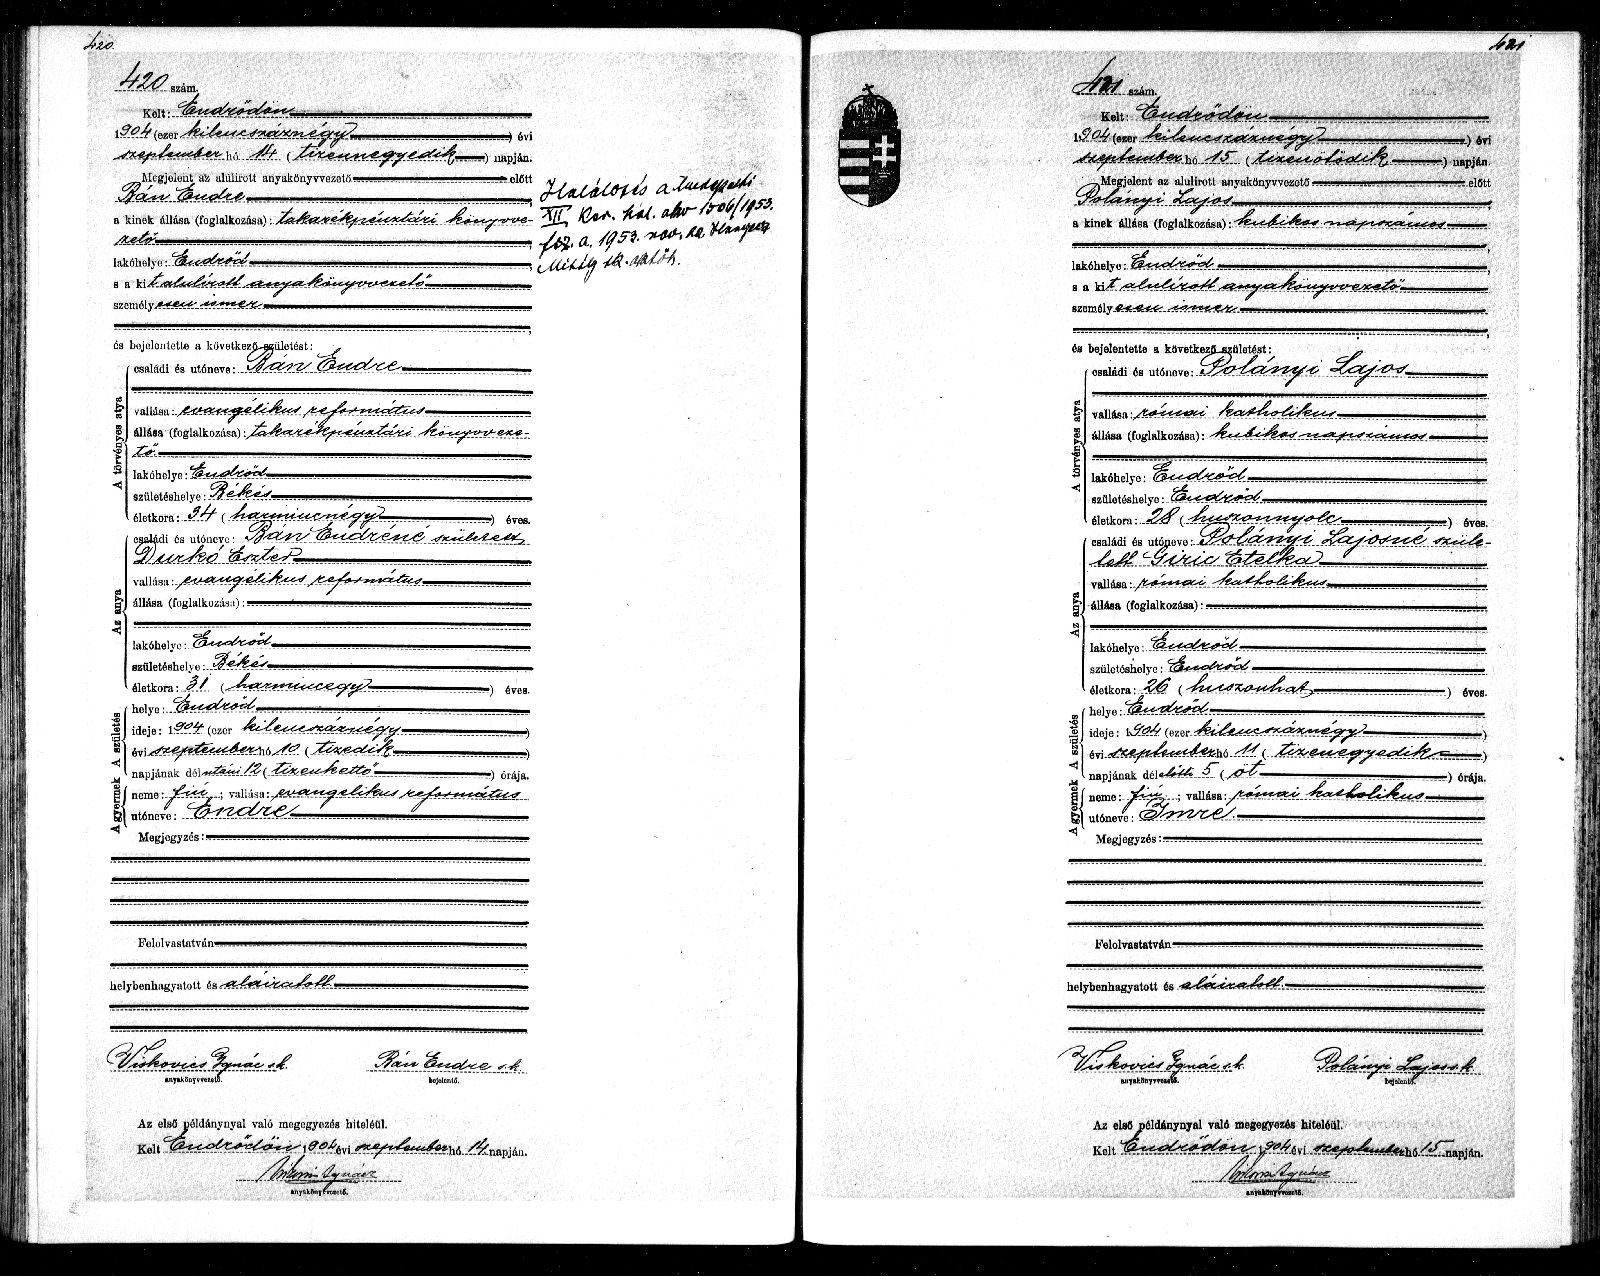 420.
420 szám.
Kelt: Endrődön
1904 (ezer kilencszáznégy) évi
szeptember hó 14 (tizennegyedik) napján.
Megjelent az alulirott anyakönyvvezető előtt
Bán Endre
a kinek állása (foglalkozása): takarékpénztári könyvve-
zető
lakóhelye: Endrőd
s a kit alulírott anyakönyvvezető
személyesen ismer
és bejelentette a következő születést:
A törvényes atya
családi és utóneve: Bán Endre
vallása: evangélikus református
állása (foglalkozása): takarékpénztári könyvveze-
tő
lakóhelye: Endrőd
születéshelye: Békés
életkora: 34 (harmincnégy) éves.
Az anya
családi és utóneve: Bán Endréné született
Durkó Eszter
vallása: evangélikus református
állása (foglalkozása):
lakóhelye: Endrőd
születéshelye: Békés
életkora: 31 (harmincegy) éves.
A születés
helye: Endrőd
ideje: 1904 (ezer kilencszáznégy)
évi szeptember hó 10 (tizedik)
napjának délutáni 12 (tizenkettő) órája.
A gyermek
neme: fiú; vallása: evangelikus református
utóneve: Endre
Megjegyzés:
Felolvastatván
helybenhagyatott és aláiratott.
Viskovics Ignác s.k. Bán Endre s.k.
anyakönyvvezető. bejelentő.
Az első példánynyal való megegyezés hiteléül.
Kelt Endrődön 1904 évi szeptember hó 14 napján.
anyakönyvvezető.
Halálozás a budapesti
XII Ker. hal. akv 1506/1953.
fsz. a. 1953. nov.
421
421 szám.
Kelt: Endrődön
1904 (ezer kilencszáznégy) évi
szeptember hó 15 (tizenötödik) napján.
Megjelent az alulirott anyakönyvvezető előtt
Polányi Lajos
a kinek állása (foglalkozása): kubikos napszámos
lakóhelye: Endrőd
s a kit alulírott anyakönyvvezető
személyesen ismer
és bejelentette a következő születést:
A törvényes atya
családi és utóneve: Polányi Lajos
vallása: római katholikus
állása (foglalkozása): kubikos napszámos
lakóhelye: Endrőd
születéshelye: Endrőd
életkora: 28 (huszonnyolc) éves.
Az anya
családi és utóneve: Polányi Lajosné szüle-
tett Giric Etelka
vallása: római katholikus
állása (foglalkozása):
lakóhelye: Endrőd
születéshelye: Endrőd
életkora: 26 (huszonhat) éves.
A születés
helye: Endrőd
ideje: 1904 (ezer kilencszáznégy)
évi szeptember hó 11 (tizenegyedik)
napjának délelőtti 5 (öt) órája.
A gyermek
neme: fiú; vallása: római katholikus
utóneve: Imre
Megjegyzés:
Felolvastatván
helybenhagyatott és aláiratott.
Viskovics Ignác s.k. Polányi Lajos s.k.
anyakönyvvezető. bejelentő.
Az első példánynyal való megegyezés hiteléül.
Kelt Endrődön 1904 évi szeptember hó 15 napján.
anyakönyvvezető.